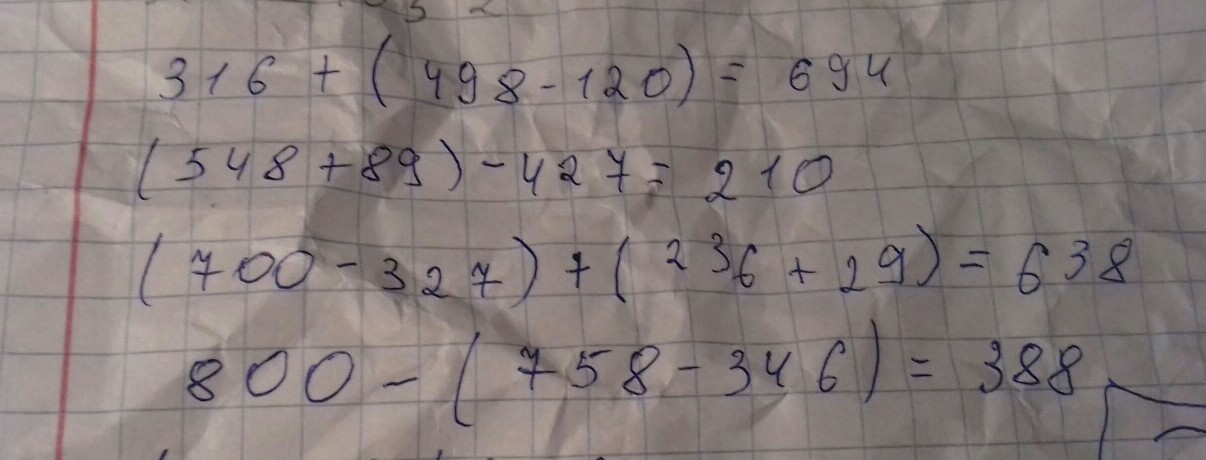 316 + (498 - 120) = 694
(548 + 89) - 427 = 210
(700 - 327) + (236 + 29) = 638
800 - (758 - 346) = 388